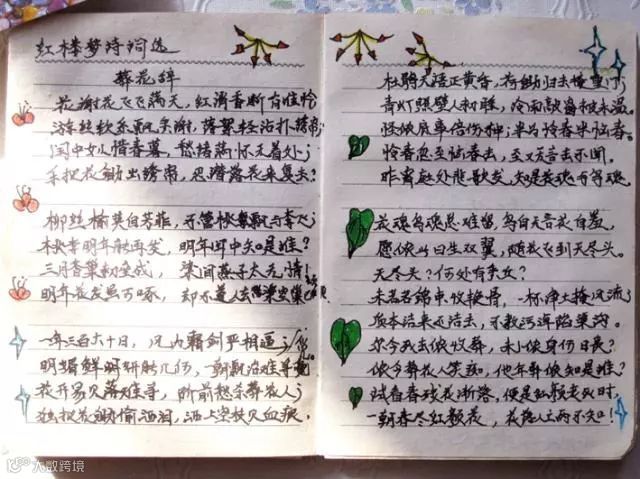 红楼梦诗词选
葬花辞
花谢花飞飞满天，红消香断有谁怜
游丝软系飘香榭，落絮轻沾扑绣帘；
闺中女儿惜春暮，愁绪满怀无着处；
手把花锄出绣帘，忍踏落花来复去？
柳丝榆荚自芳菲，不管桃飘与李飞；
桃李明年能再发，明年闺中知是谁？
三月香巢初垒成，梁间燕子太无情！
明年花发虽可啄，却不道人去梁空巢
一年三百六十日，风刀霜剑严相逼；
明媚鲜妍能几何，一朝飘泊难寻觅
花开易见落难寻，阶前愁杀葬花人；
独把花锄偷洒泪，洒上空枝见血痕。
杜鹃无语正黄昏，荷锄归去掩重门；
青灯照壁人初睡，冷雨敲窗被未温。
怪侬底事倍伤神；半为怜春半恼春。
怜春忽至恼春去，至又无言去不闻。
昨宵庭外悲歌发，知是花魂与鸟魂。
花魂鸟魂总难留，鸟自无言花自羞，
愿侬此日生双翼，随花飞到天尽头。
天尽头？何处有香丘？
未若锦囊收艳骨，一抔净土掩风流；
质本洁来还洁去，不教污淖陷渠沟。
尔今死去侬收葬，未卜侬身何日丧？
侬今葬花人笑痴，他年葬侬知是谁？
试看春残花渐落，便是红颜老死时，
一朝春尽红颜老，花落人亡两不知！
大数跨境